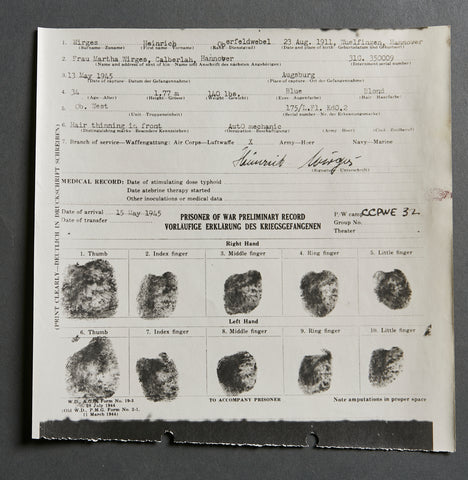 1. Wirges Heinrich Oberfeldwebel 23 Aug. 1911, Wuelfingen, Hannover
(Surname - Zuname) (First name - Vorname) (Rank - Dienstgrad) (Date and place of birth - Geburtsdatum und Geburtsort)
2. Frau Martha Wirges, Calberlah, Hannover 31G. 350009
(Name and address of next of kin - Name und Anschrift des nächsten Angehörigen) (Internment serial number)
3. 11 May 1945 Augsburg
(Date of capture - Datum der Gefangennahme) (Place of capture - Ort der Gefangennahme)
4. 34 1.77 m 140 lbs. Blue Blond
(Age - Alter) (Height - Grösse) (Weight - Gewicht) (Eyes - Augenfarbe) (Hair - Haarfarbe)
5. Ob. West 175/L.Fl. KdO.2
(Unit - Truppeneinheit) (Serial number - Nr. der Erkennungsmarke)
6. Hair thinning in front Auto mechanic
(Distinguishing marks - Besondere Kennzeichen) (Occupation - Beschäftigung) (Army - Heer) (Civil - Zivilberuf)
7. Branch of service - Waffengattung: Air Corps - Luftwaffe X Army - Heer Navy - Marine
Heinrich Wirges
(Signature - Unterschrift)
MEDICAL RECORD: Date of stimulating dose typhoid
Date atebrine therapy started
Other inoculations or medical data
Date of arrival 15 May 1945 PRISONER OF WAR PRELIMINARY RECORD P/W camp CCPWE 32
VORLAUFIGE ERKLARUNG DES KRIEGSGEFANGENEN Group No.
Theater
(PRINT CLEARLY - DEUTLICH IN DRUCKSCHRIFT SCHREIBEN)
Right Hand
1. Thumb 2. Index finger 3. Middle finger 4. Ring finger 5. Little finger
Left Hand
6. Thumb 7. Index finger 8. Middle finger 9. Ring finger 10. Little finger
W.D., A.G.O. Form No. 19-2
20 July 1944
(Old W.D., P.M.G. Form No. 2-1,
1 March 1944)
TO ACCOMPANY PRISONER Note amputations in proper space